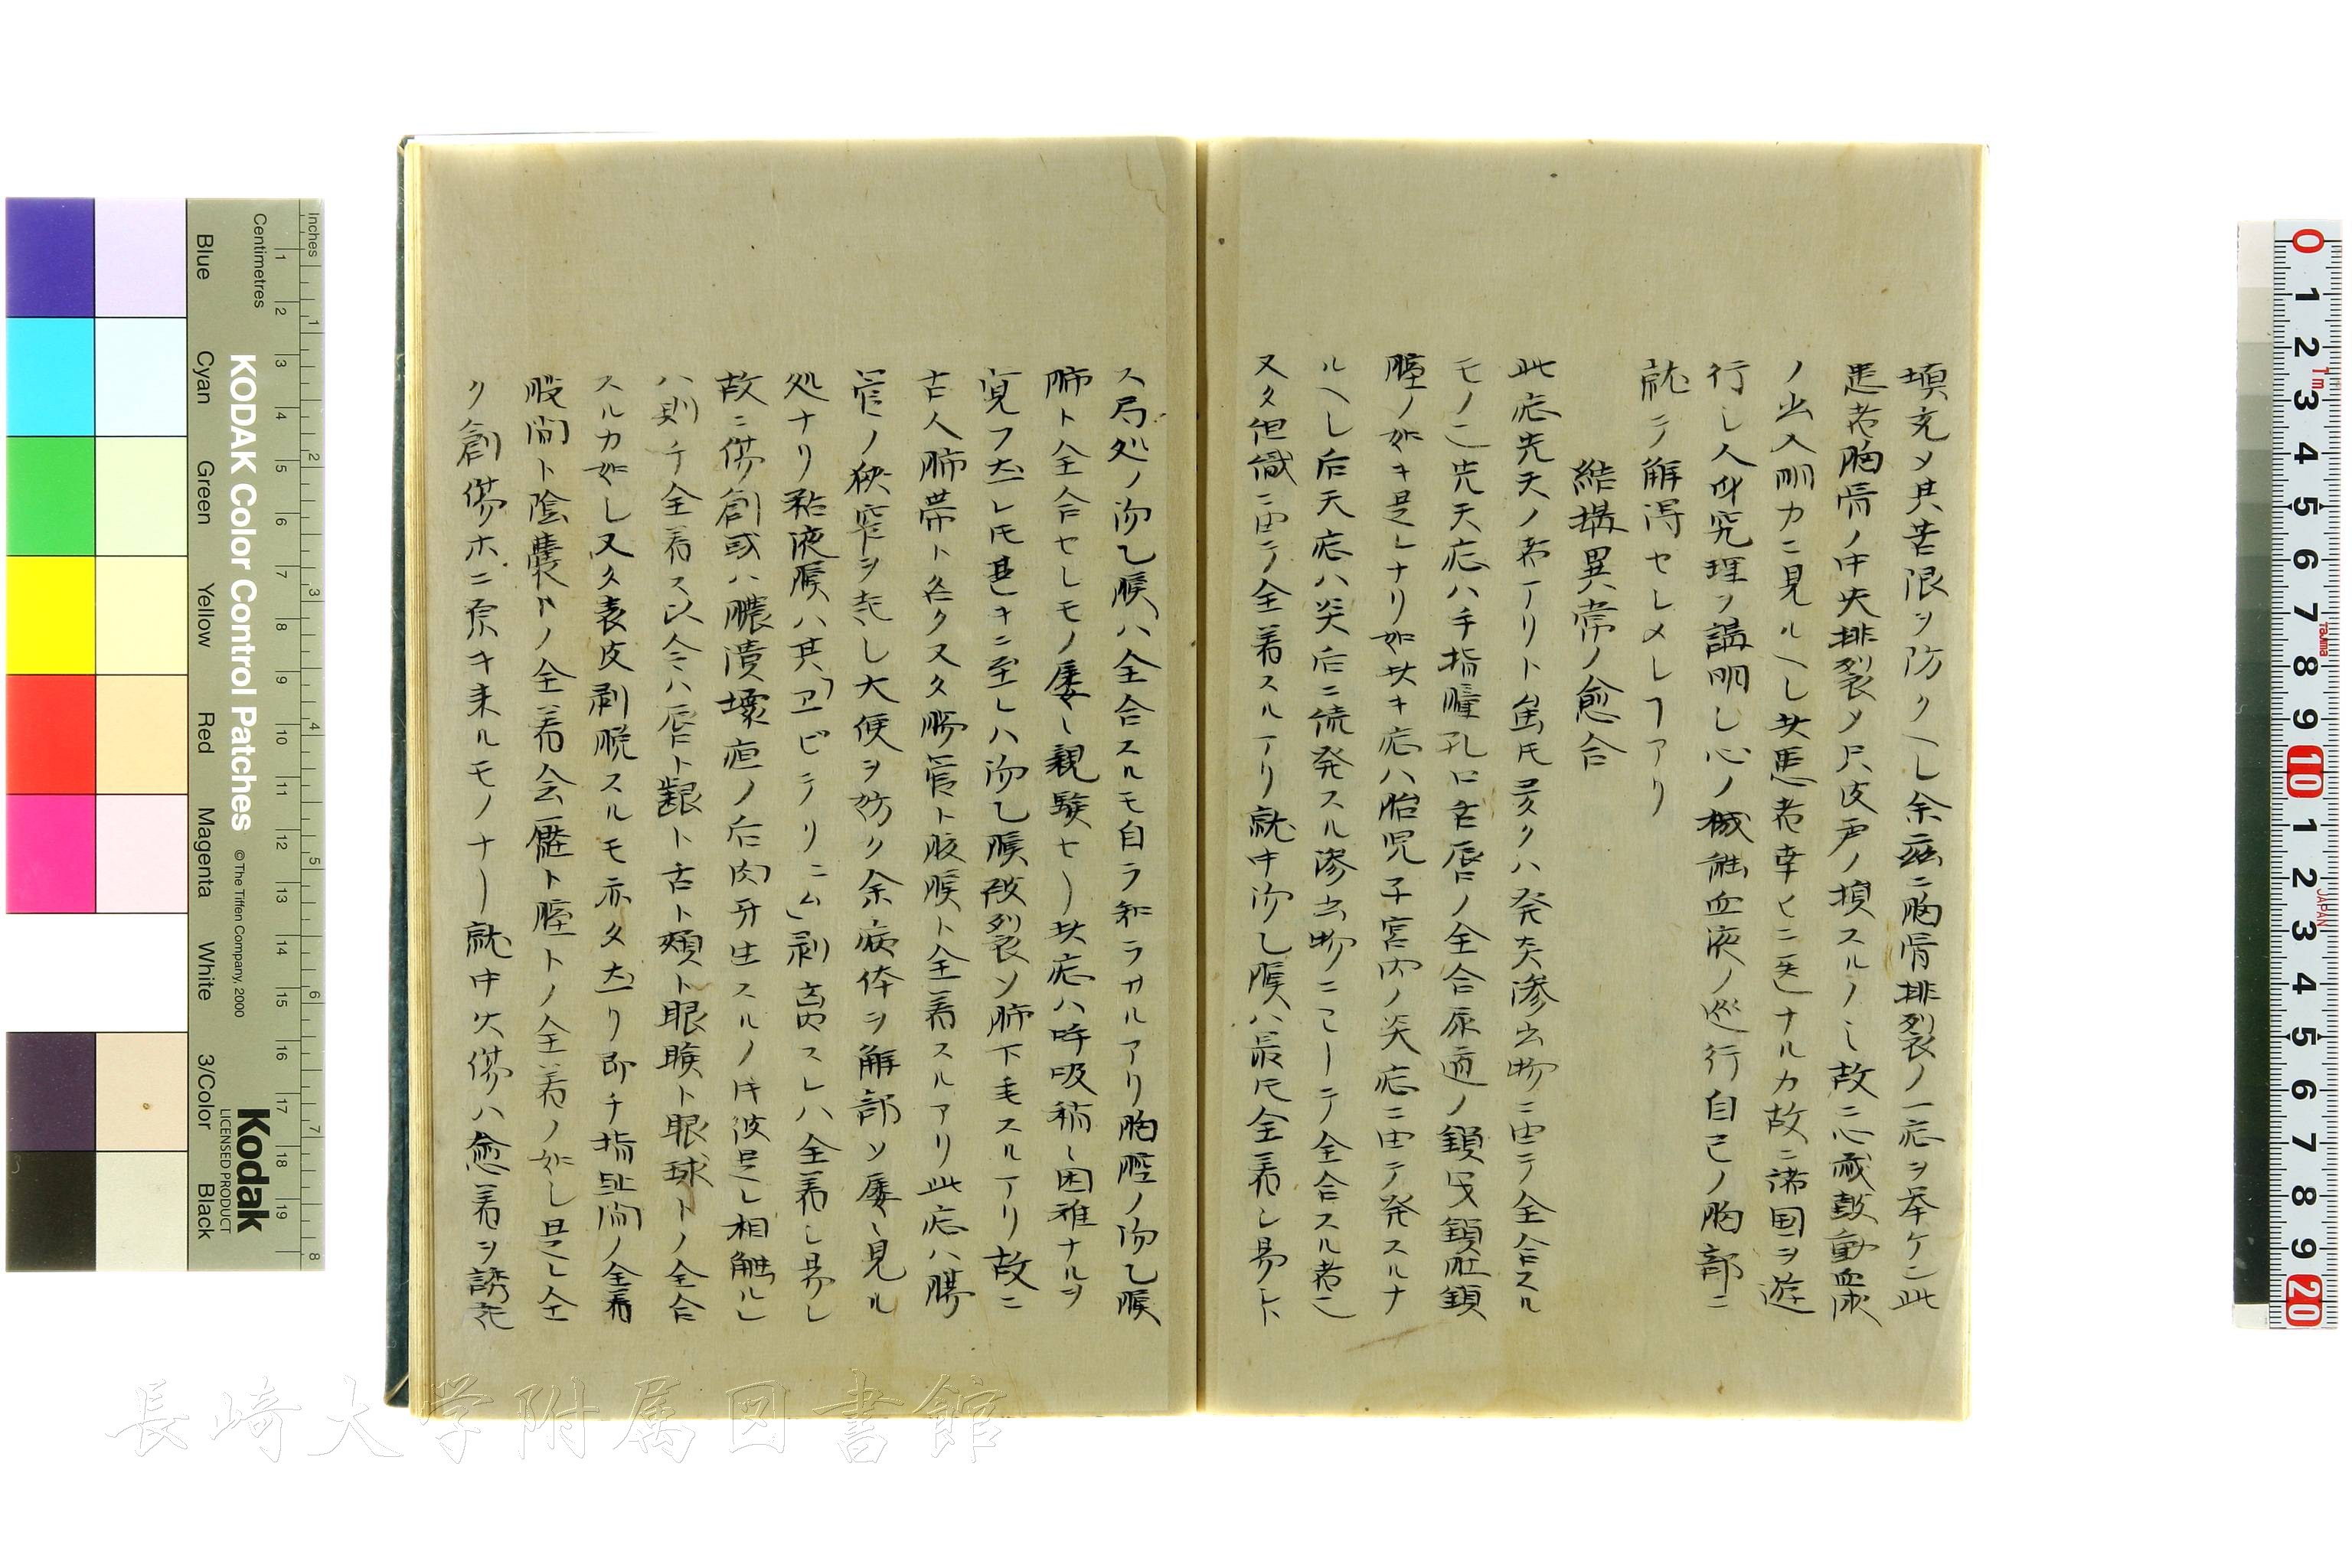 填充メ其苦限ヲ防クヘし余茲ニ胸骨排裂ノ一症ヲ挙ケン此
患者胸骨ノ中央排裂メ尺皮膚ノ損スルノミ故ニ心臓鼓動血液
ノ出入明カニ見ルヘし此患者幸ヒニ医ナルカ故ニ諸国ヲ遊
行し人身究理ヲ講明し心ノ機能血液ノ巡行自己ノ胸部ニ
就テ解得セしメしヿアリ
結構異常ノ愈合
此症先天ノ者アリト虽𪜈多クハ発炎滲出物ニ由テ全合スル
モノ也先天症ハ手指瞳孔口舌唇ノ全合尿道ノ鎖 鎖肛鎖
腟ノ如キ是レナリ如此キ症ハ胎児子宮内ノ炎症ニ由テ発スルナ
ルヘし后天症ハ炎后ニ続発スル滲出物ニ テ全合スル者也
又タ組織ニ由テ全着スルアリ就中沕乙膜ハ最𪜈全着し易しト
ス局処ノ沕乙膜ハ全合スルモ自ラ知ラサルアリ胸腔ノ沕乙膜
肺ト全合セしモノ屡々親験セリ此症ハ呼吸稍々困難ナルヲ
覚フ 𪜈甚キニ至レハ沕乙膜破裂ソ肺下垂スルアリ故ニ
古人肺帯ト名ク又タ腸管ト腹膜ト全着スルアリ此症ハ腸
管ノ狭窄ヲ起し大便ヲ妨ク余病体ヲ解剖ソ屡々見ル
処ナリ粘液膜ハ其「ヱピテリニム」剥離スレハ全着し易し
故ニ傷創或ハ膿潰壊疽ノ后肉牙生スルノ時彼是レ相触ル
ハ則チ全着ス以令ハ唇ト齦ト舌ト頬ト眼瞼ト眼球トノ全合
スルカ如し又タ表皮剥脱スルモ亦タ リ即チ指趾間ノ全着
股間ト陰嚢トノ全着会厭ト腟トノ全着ノ如し是し全
ク創傷ホニ原キ来ルモノナリ就中火傷ハ愈着ヲ誘起
KODAK Color Control Patches
©The Tiffen Company, 2000
Kodak
LICENSED PRODUCT
Inches
Centimetres
Blue
Cyan
Green
Yellow
Red
Magenta
White
3/Color
Black
長崎大学附属図書館